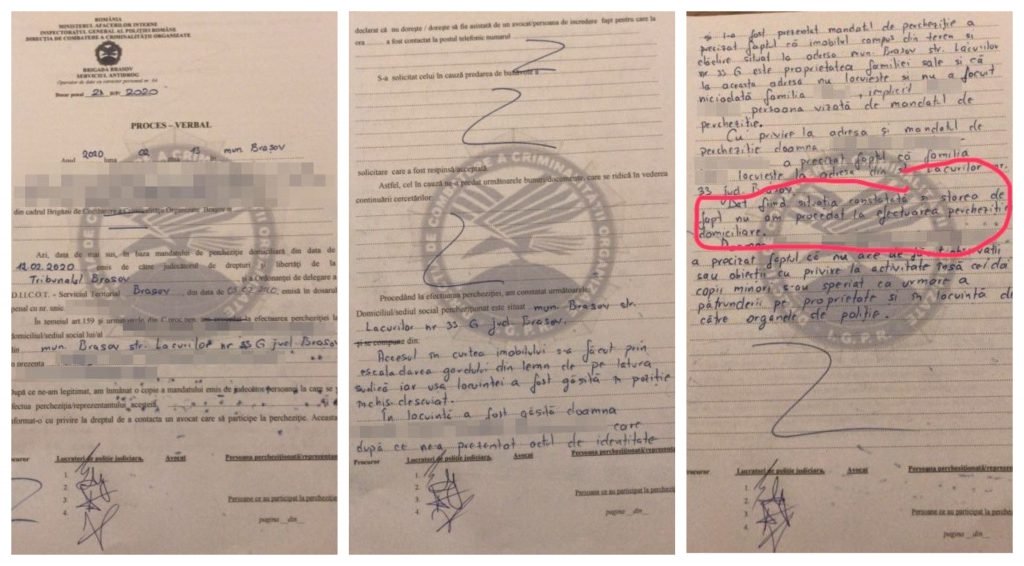 ROMÂNIA
MINISTERUL AFACERILOR INTERNE
INSPECTORATUL GENERAL AL POLIȚIEI ROMÂNE
DIRECȚIA DE COMBATERE A CRIMINALITĂȚII ORGANIZATE
BRIGADA BRAȘOV
SERVICIUL ANTIDROG
Operator de date cu caracter personal nr.
Dosar penal 2020
PROCES – VERBAL
Anul 2020 luna 02 13 în mun. Brașov
din cadrul Brigăzii de Combatere a Criminalității Organizate Brașov
Azi, data de mai sus, în baza mandatului de percheziție domiciliară din data de
12.02.2020 emis de către judecătorul de drepturi și libertăți de la
Tribunalul Brașov și a Ordonanței de delegare a
D.I.I.C.O.T. - Serviciul Teritorial Brașov, din data de emisă în dosarul
penal cu nr. unic
În temeiul art.159 și următoarele din C.proc.pen. la efectuarea percheziției la
domiciliul/sediul social lui/al
din mun. Brașov str. Lacurilor nr 33 G jud. Brașov
în prezența
după ce ne-am legitimat, am înmânat o copie a mandatului emis de judecător persoanei la care se
efectua percheziția/reprezentantului acesteia
informat-o cu privire la dreptul de a contacta un avocat care să participe la percheziție. Aceasta
Procuror Lucrători de poliție judiciară, Avocat Persoana percheziționată/reprezentant
1.
2.
3.
4.
Persoane ce au participat la percheziție
pagina __din__
declarat că nu dorește / dorește să fie asistată de un avocat/persoana de încredere fapt pentru care la
ora a fost contactat la postul telefonic numarul
S-a solicitat celui în cauză predarea de bunăvoie a
solicitare care a fost respinsă/acceptată.
Astfel, cel în cauză ne-a predat următoarele bunuri/documente, care se ridică în vederea
continuării cercetărilor:
Procedând la efectuarea percheziției, am constatat următoarele:
Domiciliul/sediul social percheziționat este situat în mun. Brașov str.
Lacurilor nr 33 G jud. Brașov.
și se compune din:
Accesul în curtea imobilului s-a făcut prin
escaladarea gardului din lemn de pe latura
sudică iar ușa locuinței a fost găsită în poziție
închis descuiat.
În locuință a fost găsită doamna
care
după ce ne-a prezentat actul de identitate
Procuror Lucrători de poliție judiciară, Avocat Persoana percheziționată/reprezentant
1.
2.
3.
4.
Persoane ce au participat la percheziție
pagina __din__
și i-a fost prezentat mandatul de percheziție a
precizat faptul că imobilul compus din teren și
clădire situat la adresa mun. Brașov str. Lacurilor
nr. 33 G este proprietatea familiei sale și că
la aceasta adresa nu locuiește și nu a locuit
niciodată familia , implicit
persoana vizată de mandatul de
percheziție.
Cu privire la adresa și mandatul de
percheziție doamna
a precizat faptul că familia
locuiește la adresa din str. Lacurilor nr.
33 jud. Brașov.
Dat fiind situația constatată și starea de
fapt nu am procedat la efectuarea percheziției
domiciliare.
Doamna
a precizat faptul că nu are de observații
sau obiecții cu privire la activitate însă cei doi
copii minori s-au speriat ca urmare a
pătrunderii pe proprietate și în locuință de
către organele de poliție.
Procuror Lucrători de poliție judiciară, Avocat Persoana percheziționată/reprezentant
1.
2.
3.
4.
Persoane ce au participat la percheziție
pagina __din__